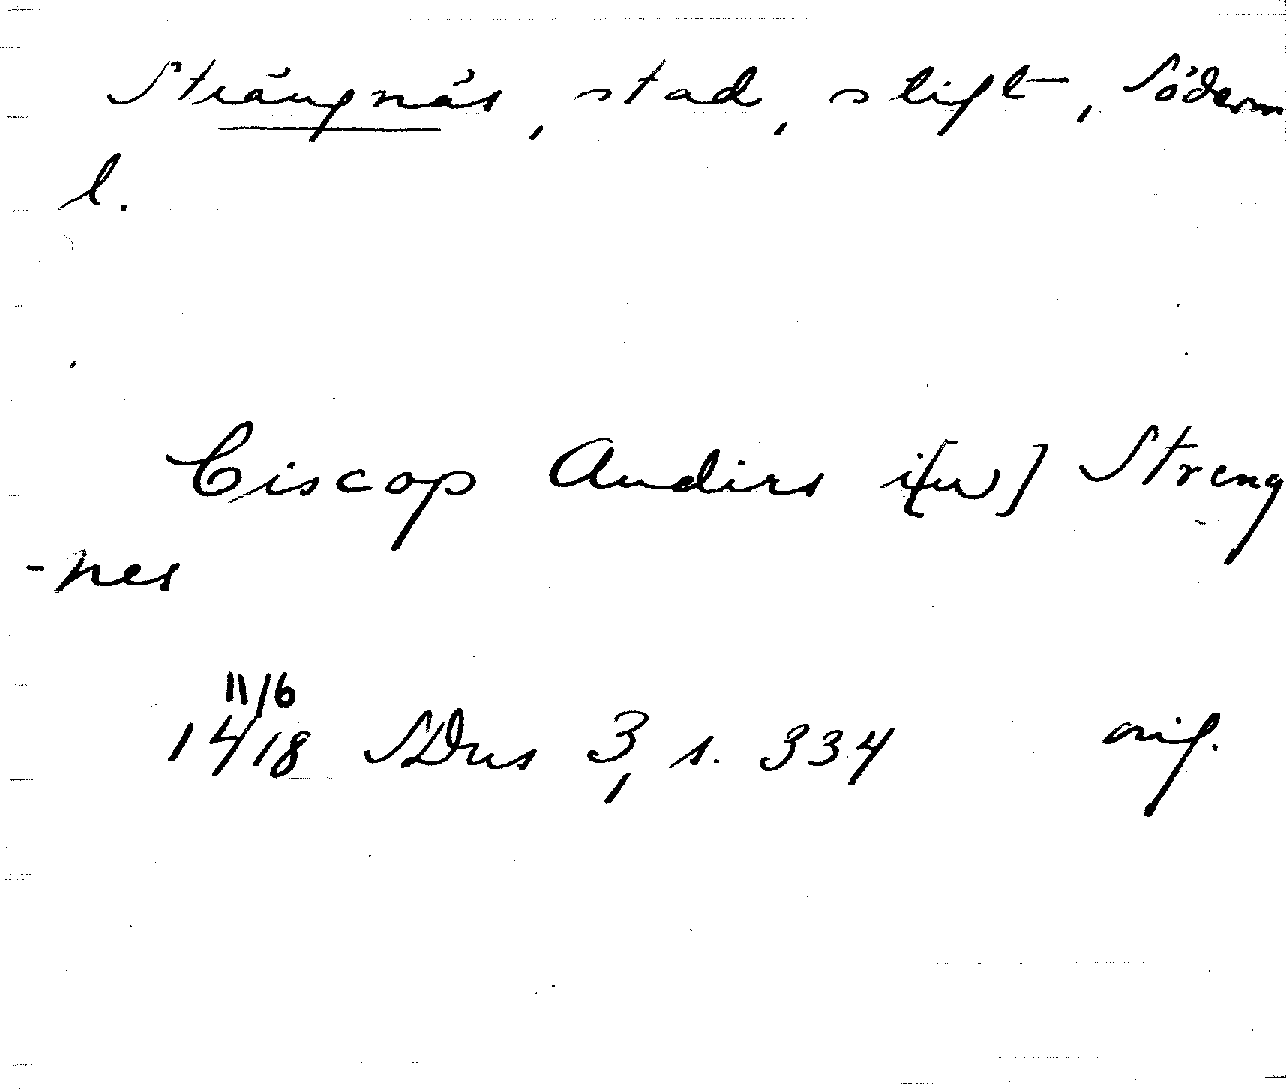 Strängnäs, stad, stift, Söderm
l.
Biscop Andirs i[w] Streng
-nes
11/6
1418 SDns 3, s. 334 orig.